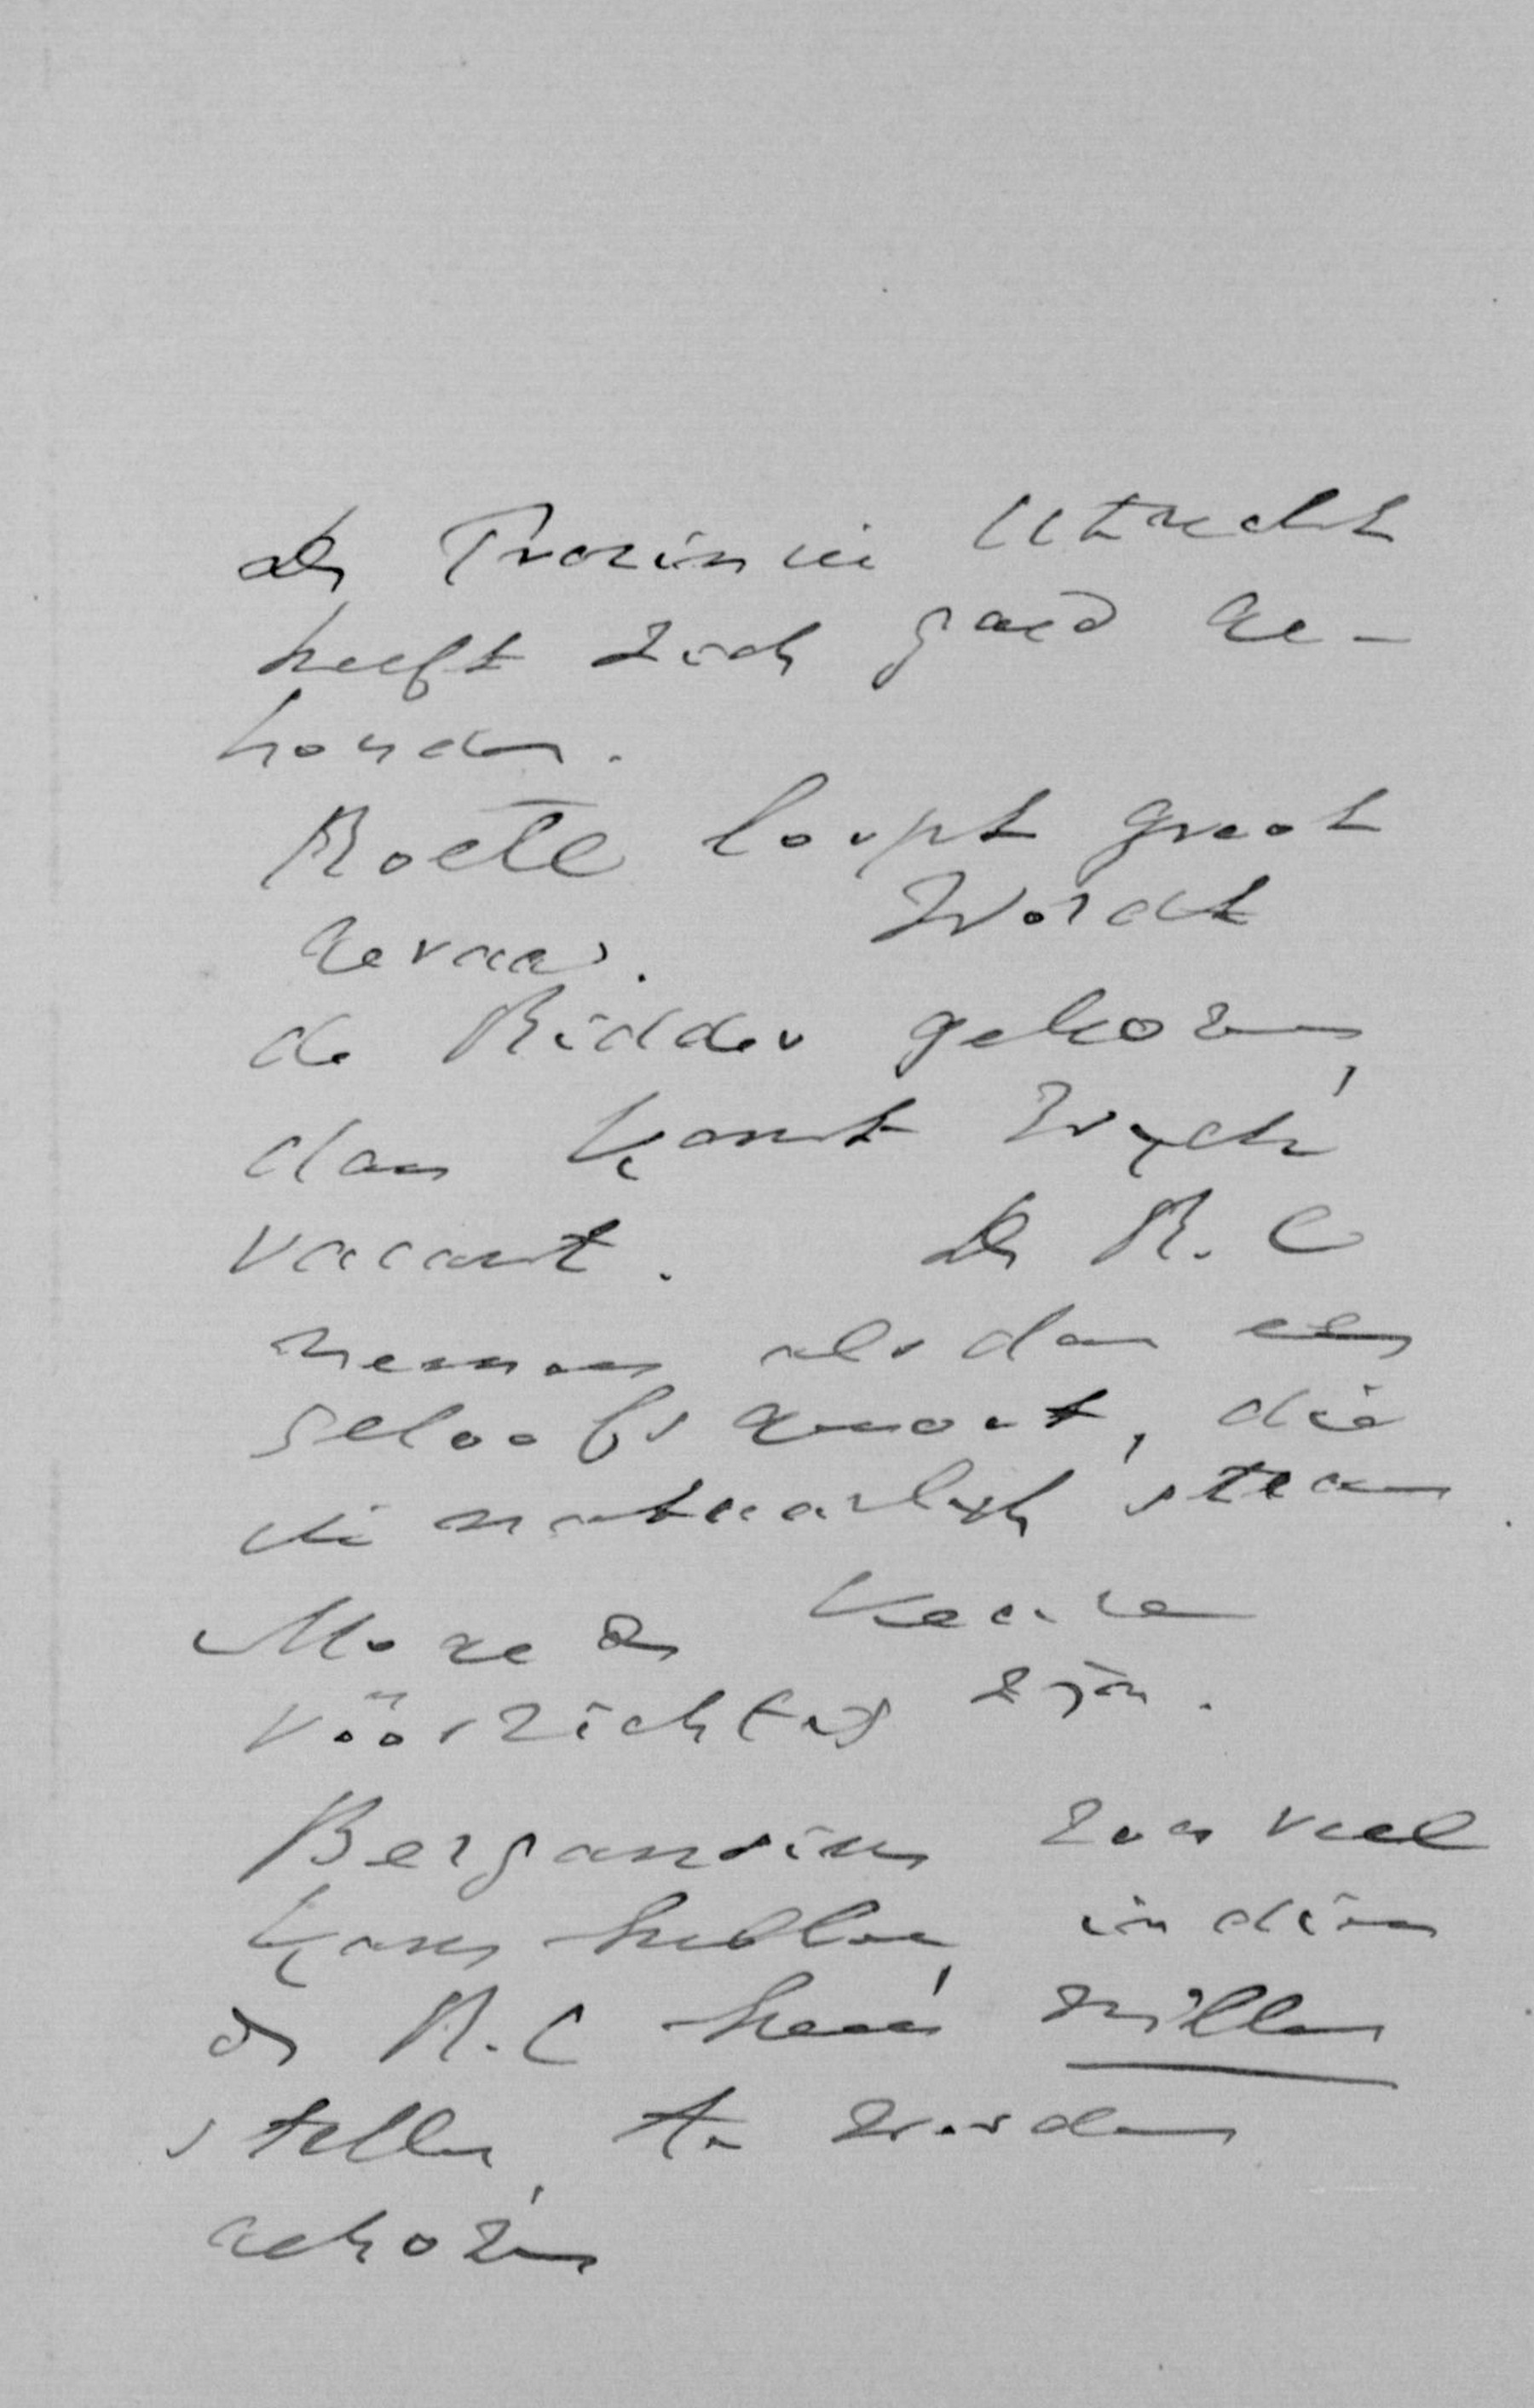 De Provincie Utrecht
heeft zich goed ge-
houden.
Roëll loopt groot
gevaar. Wordt
de Ridder gekozen,
dan komt Wijck
vacant. De R.C
nemen alsdan een
geloofsgenoot, die
wi natuurlijk steunen.
Moge de keuze
vóórzichtig zijn.
Bergansius zou veel
kans hebben, indien
de R.C hem willen
stellen, te worden
gekozen